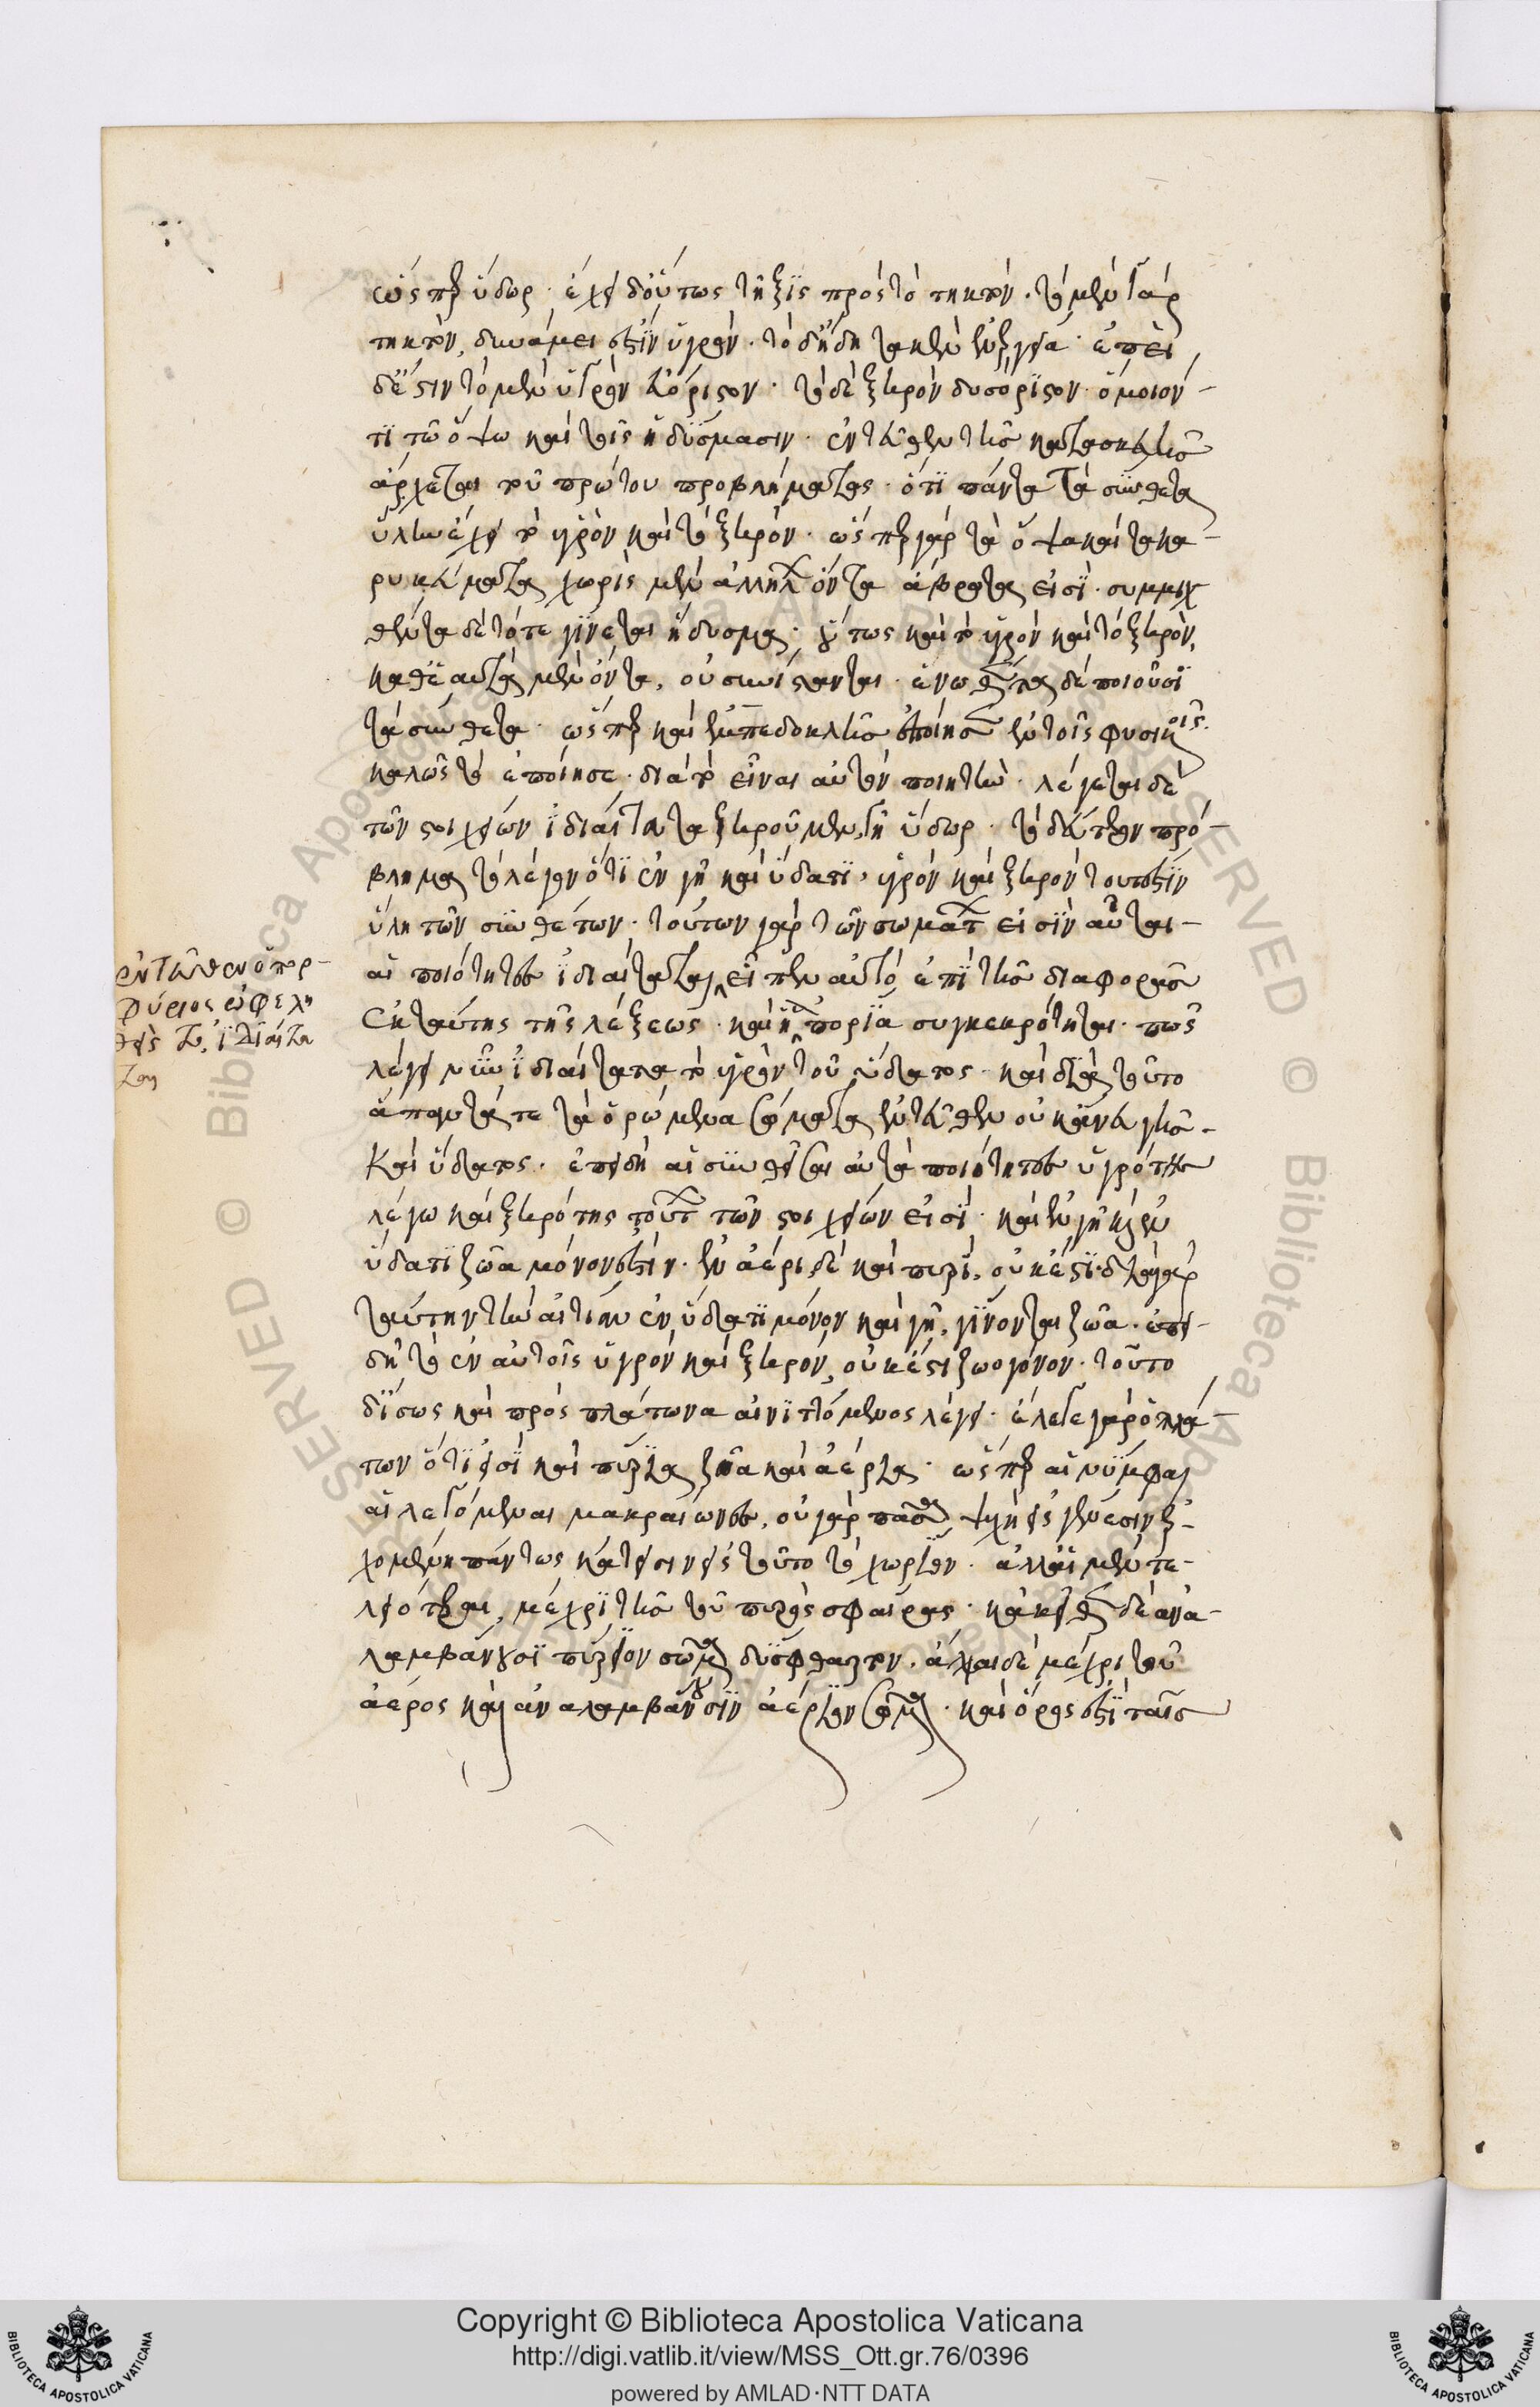 ὥσπερ ὕδωρ. ἔχει δ' οὕτως πῆξις πρὸς τὸ τηκτόν. τὸ μὲν γὰρ
τηκτὸν, δυνάμει ἐστὶν ὑγρόν. τὸ δ' ἤδη τακὲν ἐνεργείᾳ. ἐπεὶ
δ' ἔστιν τὸ μὲν ὑγρὸν εὐόριστον. τὸ δὲ ξηρὸν δυσόριστον. ὅμοιόν-
τι τῷ ὄψῳ καὶ τοῖς ἡδύσμασιν. ἐντεῦθεν τῆς κατασκευῆς
ἄρχεται τοῦ πρώτου προβλήματος. ὅτι πάντα τὰ σύνθετα
ὕλην ἔχει τὸ ὑγρὸν καὶ τὸ ξηρόν. ὥσπερ γὰρ τὰ ὄψα καὶ τὰ κα-
ρυκεύματα χωρὶς μὲν ἀλλήλων ὄντα ἄβρωτα εἰσί. συμμιχ
θέντα δὲ τότε γίνεται ἥδυσμα. οὕτως καὶ τὸ ὑγρὸν καὶ τὸ ξηρὸν,
καθ' ἑαυτὰ μὲν ὄντα, οὐ συνίστανται. ἑνωθέντα δὲ ποιοῦσι
τὰ σύνθετα. ὥσπερ καὶ ἐμπεδοκλῆς ἐποίησεν ἐν τοῖς φυσικοῖς.
καλῶς τὸ ἐποίησε. διὰ τὸ εἶναι αὐτὸν ποιητήν. λέγεται δὲ
τῶν στοιχείων ἰδιαίτατα ξηροῦ μὲν, γῆ ὕδωρ. τὸ δεύτερον πρό-
βλημα τὸ λέγον ὅτι ἐν γῇ καὶ ὕδατι, ὑγρὸν καὶ ξηρὸν τουτέστιν
ὕλη τῶν συνθέτων. τούτων γὰρ τῶν σωμάτων εἰσὶν αὗται-
αἱ ποιότητες ἰδιαίταται, εἶπεν αὐτὸ, ἐπὶ τῆς διαφορᾶς
ἐκ ταύτης τῆς λέξεως. καὶ ἡ ἀπορία συγκεκρότηται. πῶς
λέγει νῦν ἰδιαίτατα τὸ ὑγρὸν τοῦ ὕδατος. καὶ διὰ τοῦτο
ἅπαντά τε τὰ ὁρώμενα σώματα ἐντεῦθεν οὐκ ἄνευ γῆς.
καὶ ὕδατος. ἐπειδὴ αἱ συνθεῖσαι αὐτὰ ποιότητες ὑγρότης
λέγω καὶ ξηρότης τούτων τῶν στοιχείων εἰσί. καὶ ἐν γῇ καὶ ἐν
ὕδατι ζῶα μόνον ἐστίν. ἐν ἀέρι δὲ καὶ πυρὶ, οὐκ ἔστι. διὰ γὰρ
ταύτην τὴν αἰτίαν ἐν ὕδατι μόνον καὶ γῇ, γίνονται ζῶα. ἐπει-
δὴ τὸ ἐν αὐτοῖς ὑγρὸν καὶ ξηρὸν, οὐκ ἔστι ζωογόνον. τοῦτο
δ' ἴσως καὶ πρὸς πλάτωνα αἰνιττόμενος λέγει. ἔλεγε γὰρ ὁ πλά-
των ὅτι εἰσὶ καὶ πύρια ζῶα καὶ ἀέρια. ὥσπερ αἱ νύμφαι
αἱ λεγόμεναι μακραίωνες, οὐ γὰρ πᾶσα ψυχὴ εἰς γένεσιν ἐρ-
χομένη πάντως κάτεισιν εἰς τοῦτο τὸ χωρίον. ἀλλ' αἱ μὲν τε-
λειότεραι, μέχρι τῆς τοῦ πυρὸς σφαίρας. κἀκεῖθεν δὲ ἀνα-
λαμβάνουσι πύριον σῶμα δύσφθαρτον. αἱ δὲ μέχρι τοῦ
ἀέρος καὶ ἀναλαμβάνουσιν ἀέριον σῶμα. καὶ ὅρος ἐστὶ ταῖς
ἐντεῦθεν ὁ πορ-
φύριος ὠφελή
θεὶς τὸ, ἰδιαίτα
ται
Copyright © Biblioteca Apostolica Vaticana
http://digi.vatlib.it/view/MSS_Ott.gr.76/0396
powered by AMLAD·NTT DATA
BIBLIOTECA APOSTOLICA VATICANA
BIBLIOTECA APOSTOLICA VATICANA